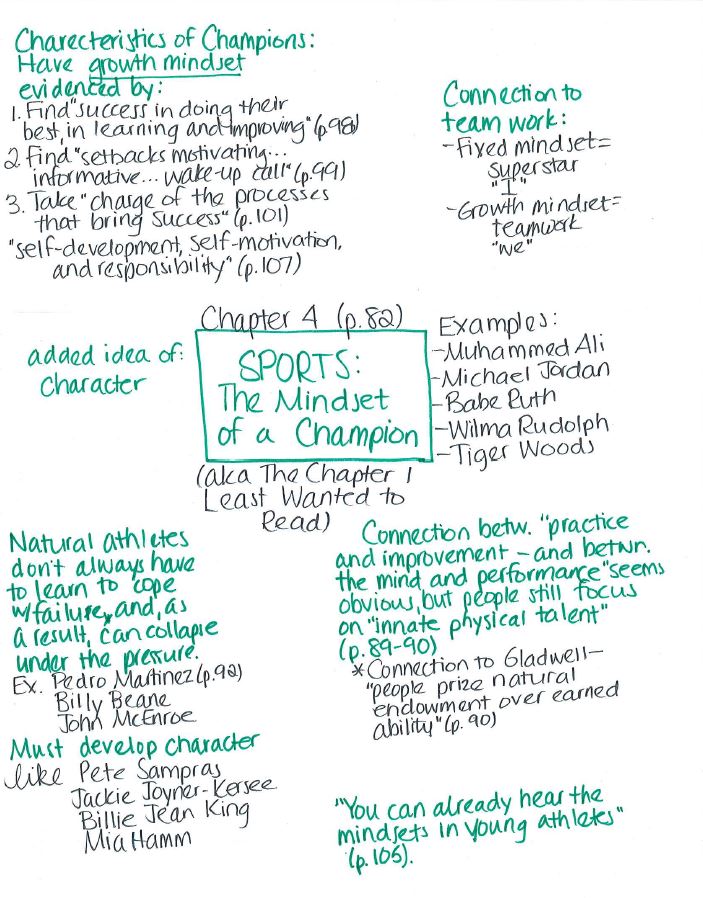 Charecteristics of Champions:
Have growth mindset
evidenced by:
1. Find "success in doing their
best, in learning and improving" (p.98)
2. Find "setbacks motivating...
informative... wake-up call" (p.99)
3. Take "charge of the processes
that bring success" (p.101)
"self-development, self-motivation,
and responsibility" (p.107)
Connection to
team work:
-Fixed mindset=
superstar
"I"
-Growth mindset=
teamwork
"we"
added idea of:
Character
Chapter 4 (p.82)
SPORTS:
The Mindset
of a Champion
(aka The Chapter I
Least Wanted to
Read)
Examples:
-Muhammed Ali
-Michael Jordan
-Babe Ruth
-Wilma Rudolph
-Tiger Woods
Natural athletes
don't always have
to learn to cope
w/failure, and, as
a result, can collapse
under the pressure.
Ex. Pedro Martinez (p.92)
Billy Beane
John McEnroe
Must develop character
like Pete Sampras
Jackie Joyner-Kersee
Billie Jean King
Mia Hamm
Connection betw. "practice
and improvement - and betwn.
the mind and performance" seems
obvious, but people still focus
on "innate physical talent"
(p.89-90)
*Connection to Gladwell-
"people prize natural
endowment over earned
ability" (p.90)
"You can already hear the
mindsets in young athletes"
(p.105).